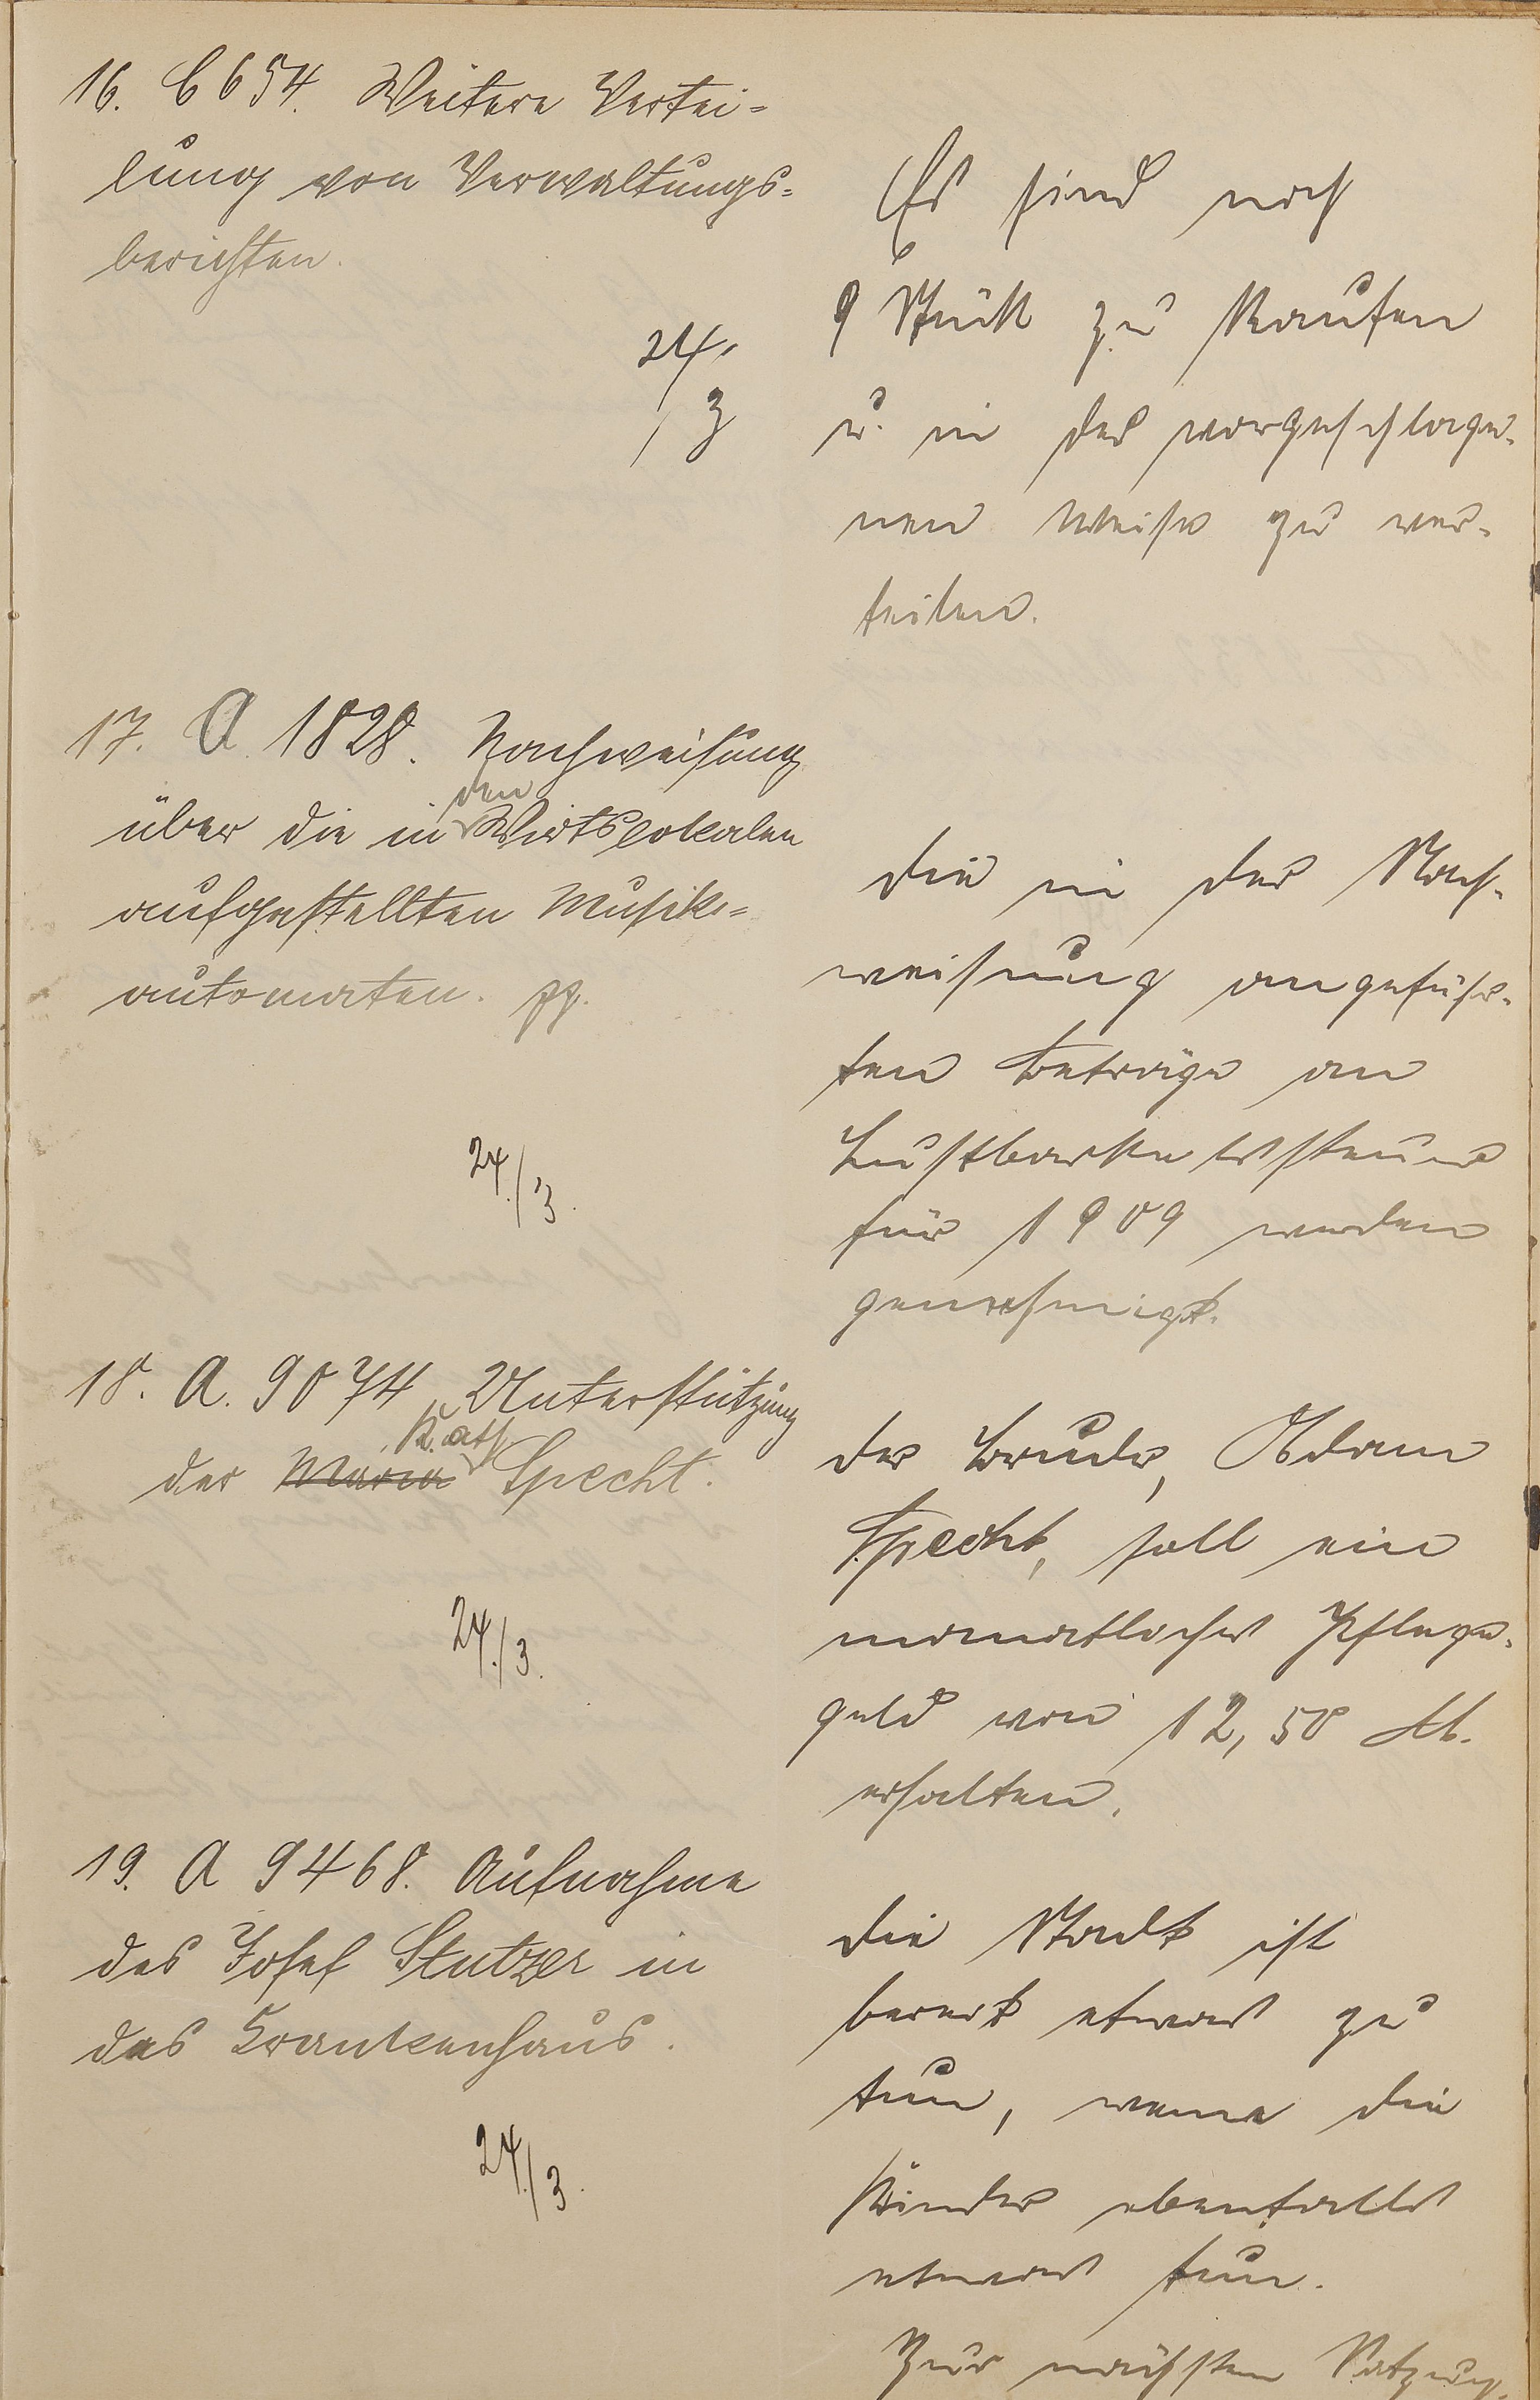 16. C 654. Weitere Vertei-
lung von Verwaltungs-
berichten.
24./3
Es sind noch
9 Stück zu kaufen
u. in der vorgeschlage-
nen Weise zu ver-
teilen.
17. A 1828. Nachweisung
über die in den Wirtslokalen
aufgestellten Musik-
automaten. pp.
24./3.
Die in der Nach-
weisung angeführ-
ten Beträge an
Lustbarkeitssteuer
für 1909 werden
genehmigt.
18. A. 9074 Unterstützung
der Maria Kath Specht.
24./3.
Der Bruder, Adam
Specht, soll ein
monatliches Pflege-
geld von 12,50 M.
erhalten.
19. A 9468. Aufnahme
des Josef Stutzer in
das Krankenhaus.
24./3.
Die Stadt ist
bereit etwas zu
tun, wenn die
Kinder ebenfalls
etwas tun.
Zur nächsten Sitzung.